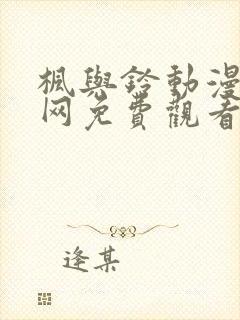 楓與鈴動漫
网免費觀看
逢某